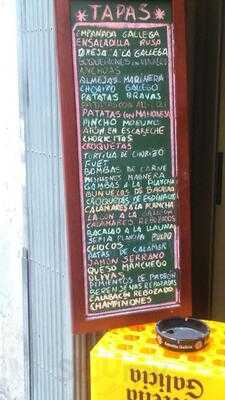 TAPAS
EMPANADA GALLEGA
ENSALADILLA RUSA
OREJA A LA GALLEGA
BOQUERONES EN VINAGRE
ANCHOAS
ALMEJAS MARINERA
CHORIZO GALLEGO
PATATAS BRAVAS
PATATAS CON ALI OLI
PATATAS CON MAHONESA
PINCHO MORUNO
ATUN EN ESCABECHE
CHORICITOS
CROQUETAS
TORTILLA DE CHORIZO
FUET
BOMBAS DE CARNE
MEJILLONES MARINERA
GAMBAS A LA PLANCHA
BUÑUELOS DE BACALAO
CROQUETAS DE ESPINACAS
CALAMARES A LA PLANCHA
LACON A LA GALLEGA
CALAMARES REBOZADOS
BACALAO A LA LLAUNA
SEPIA PLANCHA PULPO
CHOCOS
RABAS DE CALAMAR
JAMON SERRANO
QUESO MANCHEGO
OLIVAS
PIMIENTOS DE PADRON
BERENJENAS REBOZADAS
CALABACIN REBOZADO
CHAMPIÑONES
Estrella Galicia
Galicia
Galicia